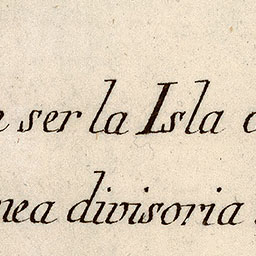 ser la Isla
divisoria